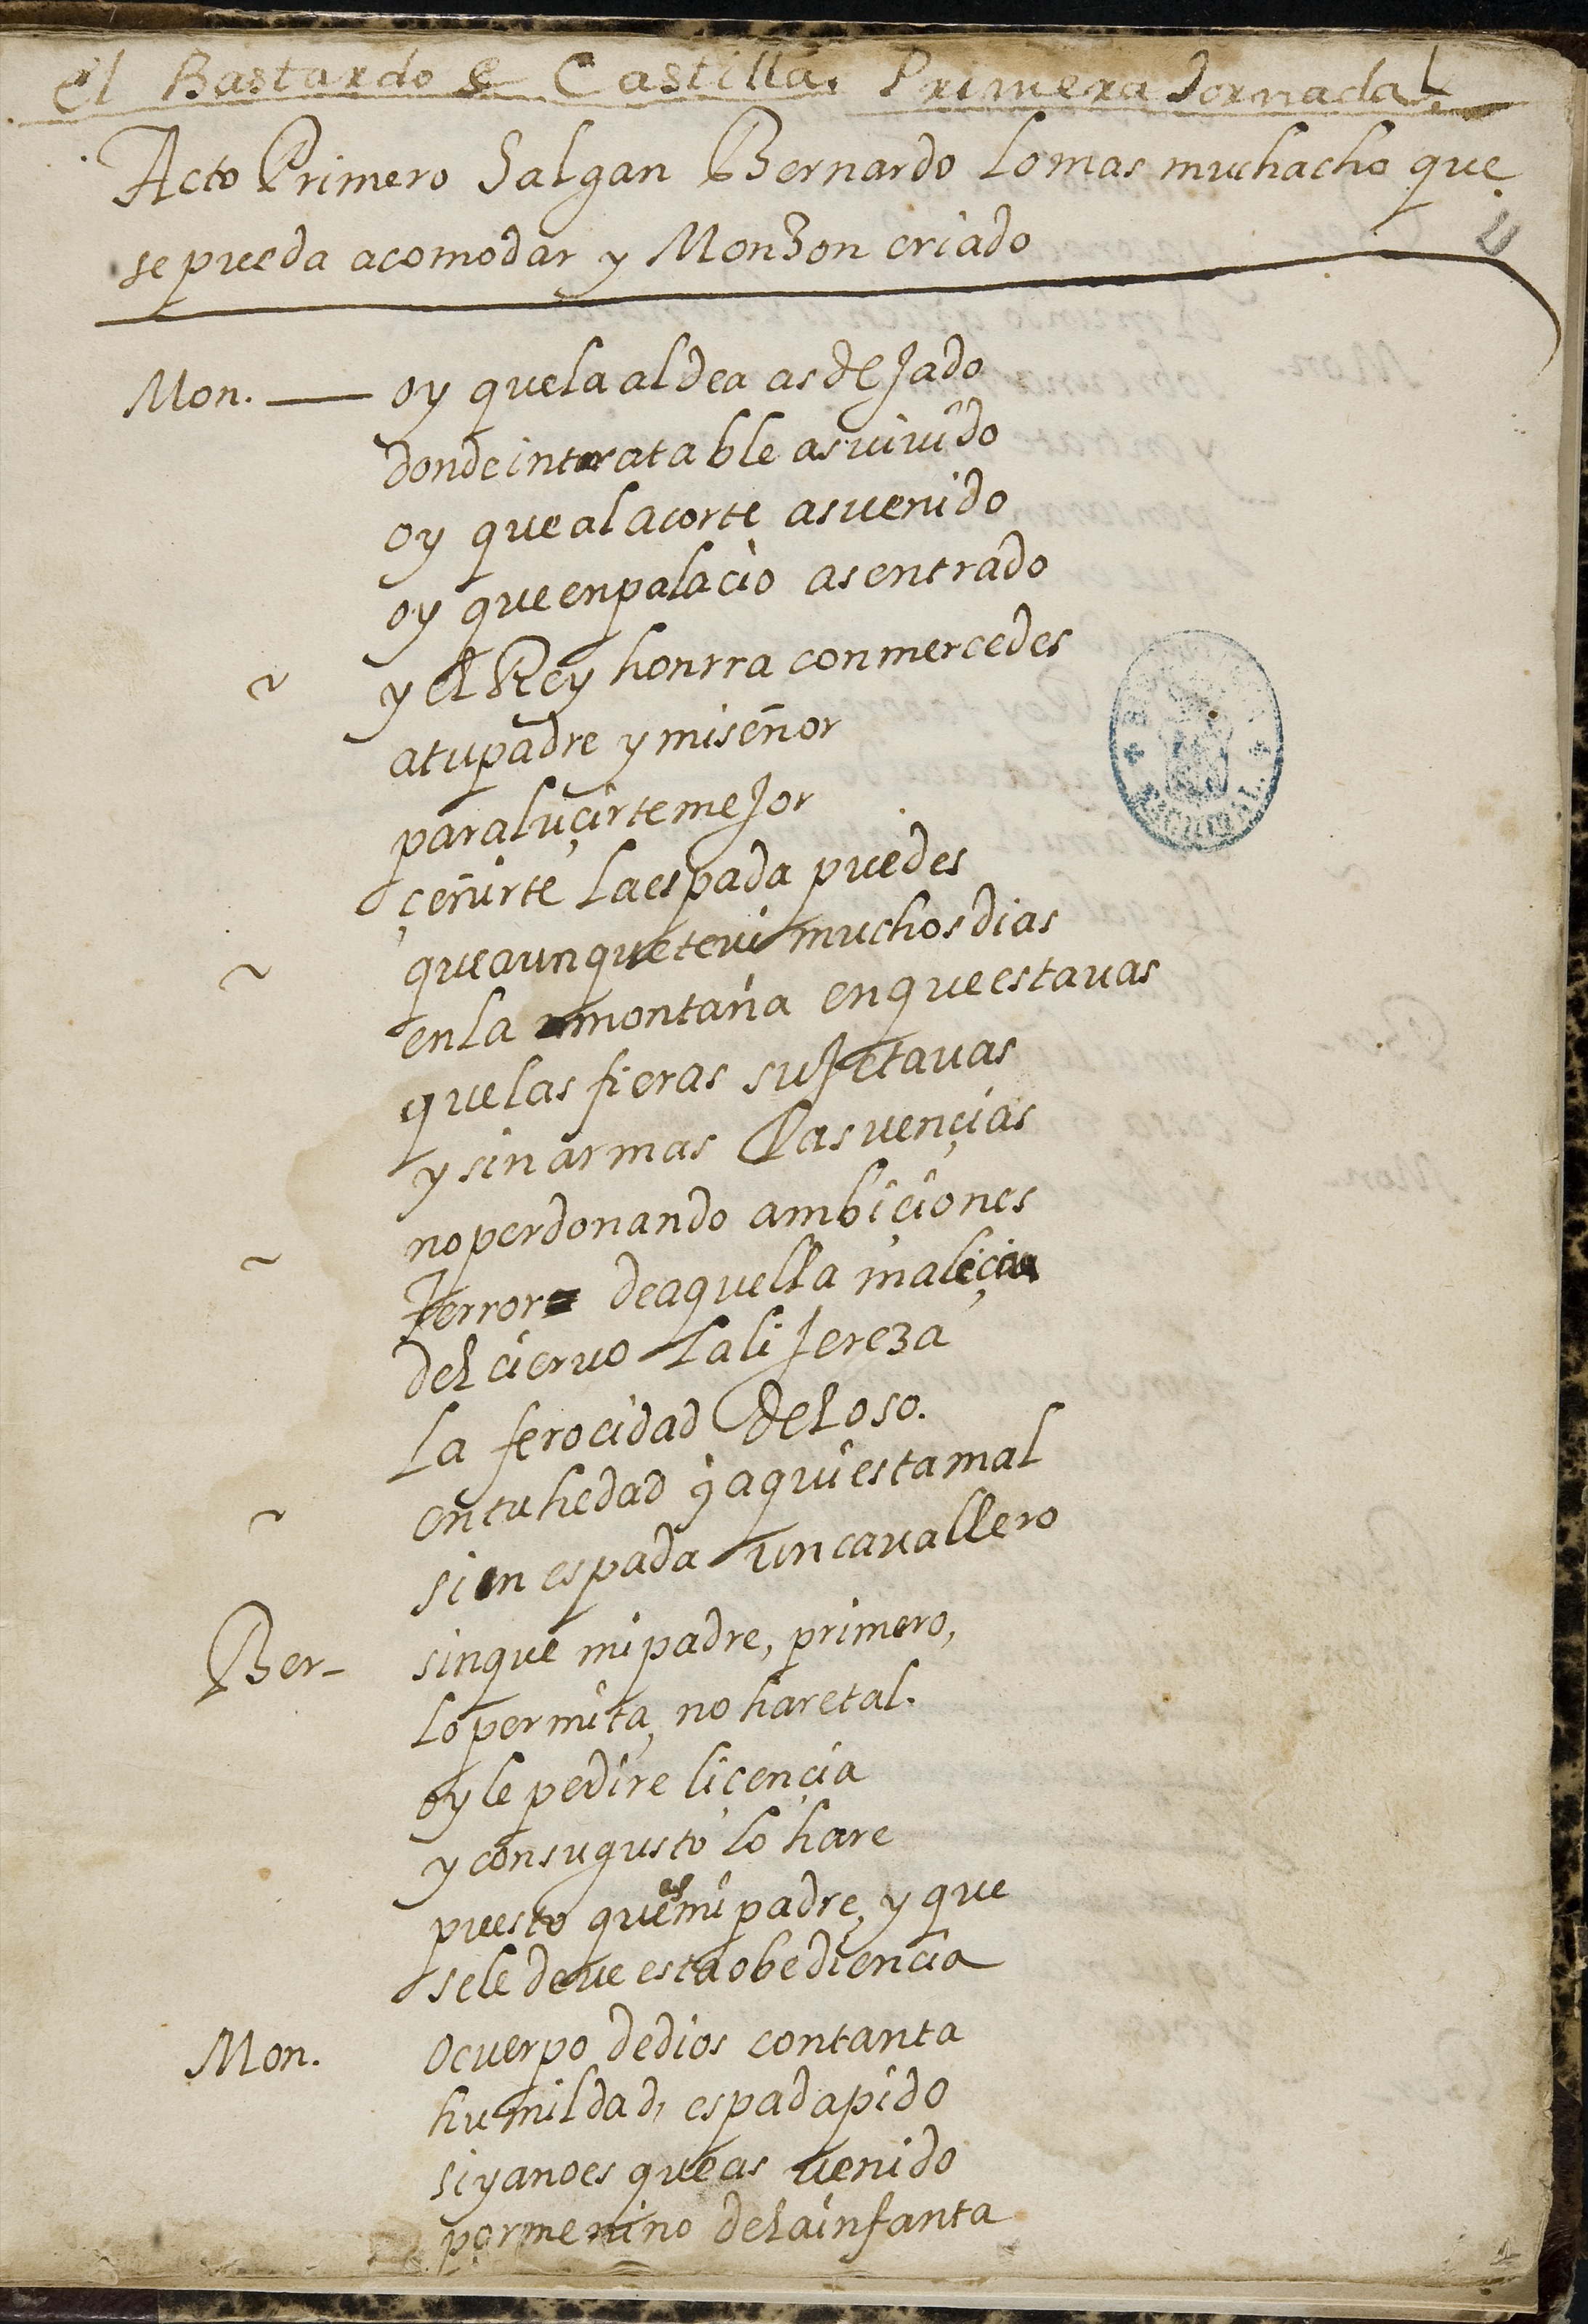 El Bastardo de Castilla. Primera Jornada.
Acto Primero Salgan Bernardo lo mas muchacho que
se pueda acomodar y Monzon criado
Mon. — oy que la aldea as dejado
donde intratable as uiuido
oy que a la corte as uenido
oy que en palacio as entrado
y el Rey honrra con mercedes
a tu padre y mi señor
para luçirte mejor
çeñirte la espada puedes
que aunque te ui muchos dias
en la montaña en que estauas
que las fieras sujetauas
y sin armas las uençias
no perdonando ambiçiones
terror de aquella maleça
del cieruo la lijereza
la ferocidad del oso.
en tu hedad y aqui esta mal
sin espada un cauallero
Ber- sin que mi padre, primero,
lo permita, no hare tal.
oy le pedire liçençia
y con su gusto lo hare
puesto que es mi padre, y que
se le deue esta obediencia
Mon. o cuerpo de dios con tanta
humildad, espada pido
si ya no es que as uenido
por menino de la infanta